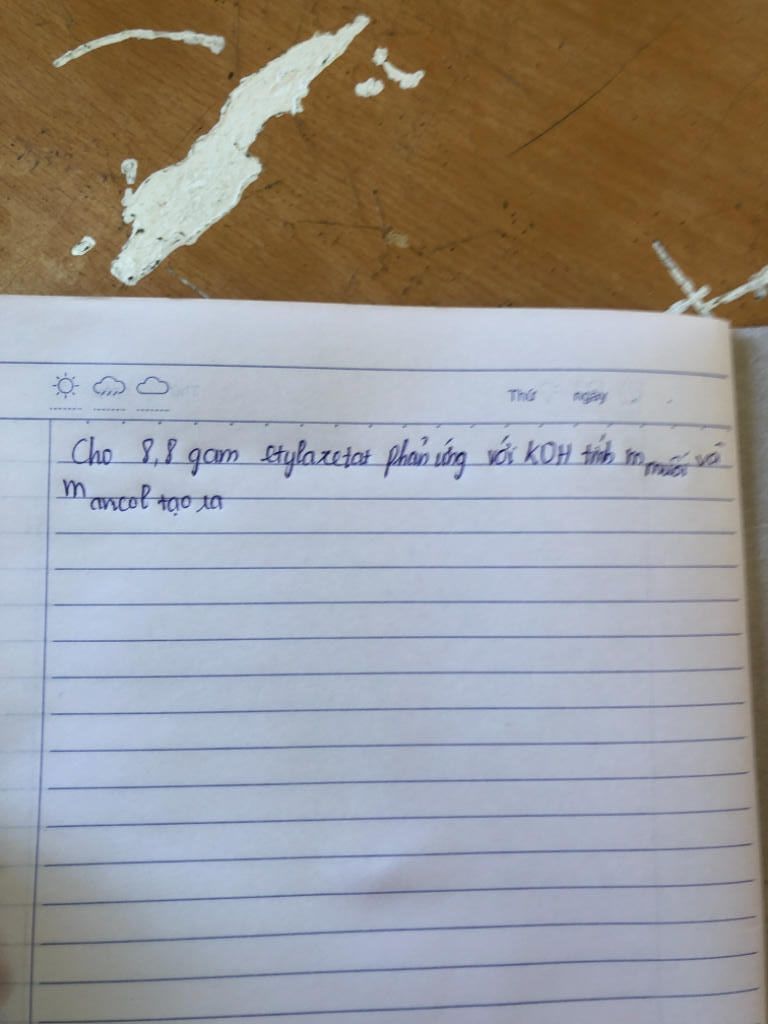 Thứ ngày
Cho 8,8 gam etylaxetat phản ứng với KOH tính m muối và
m ancol tạo ra